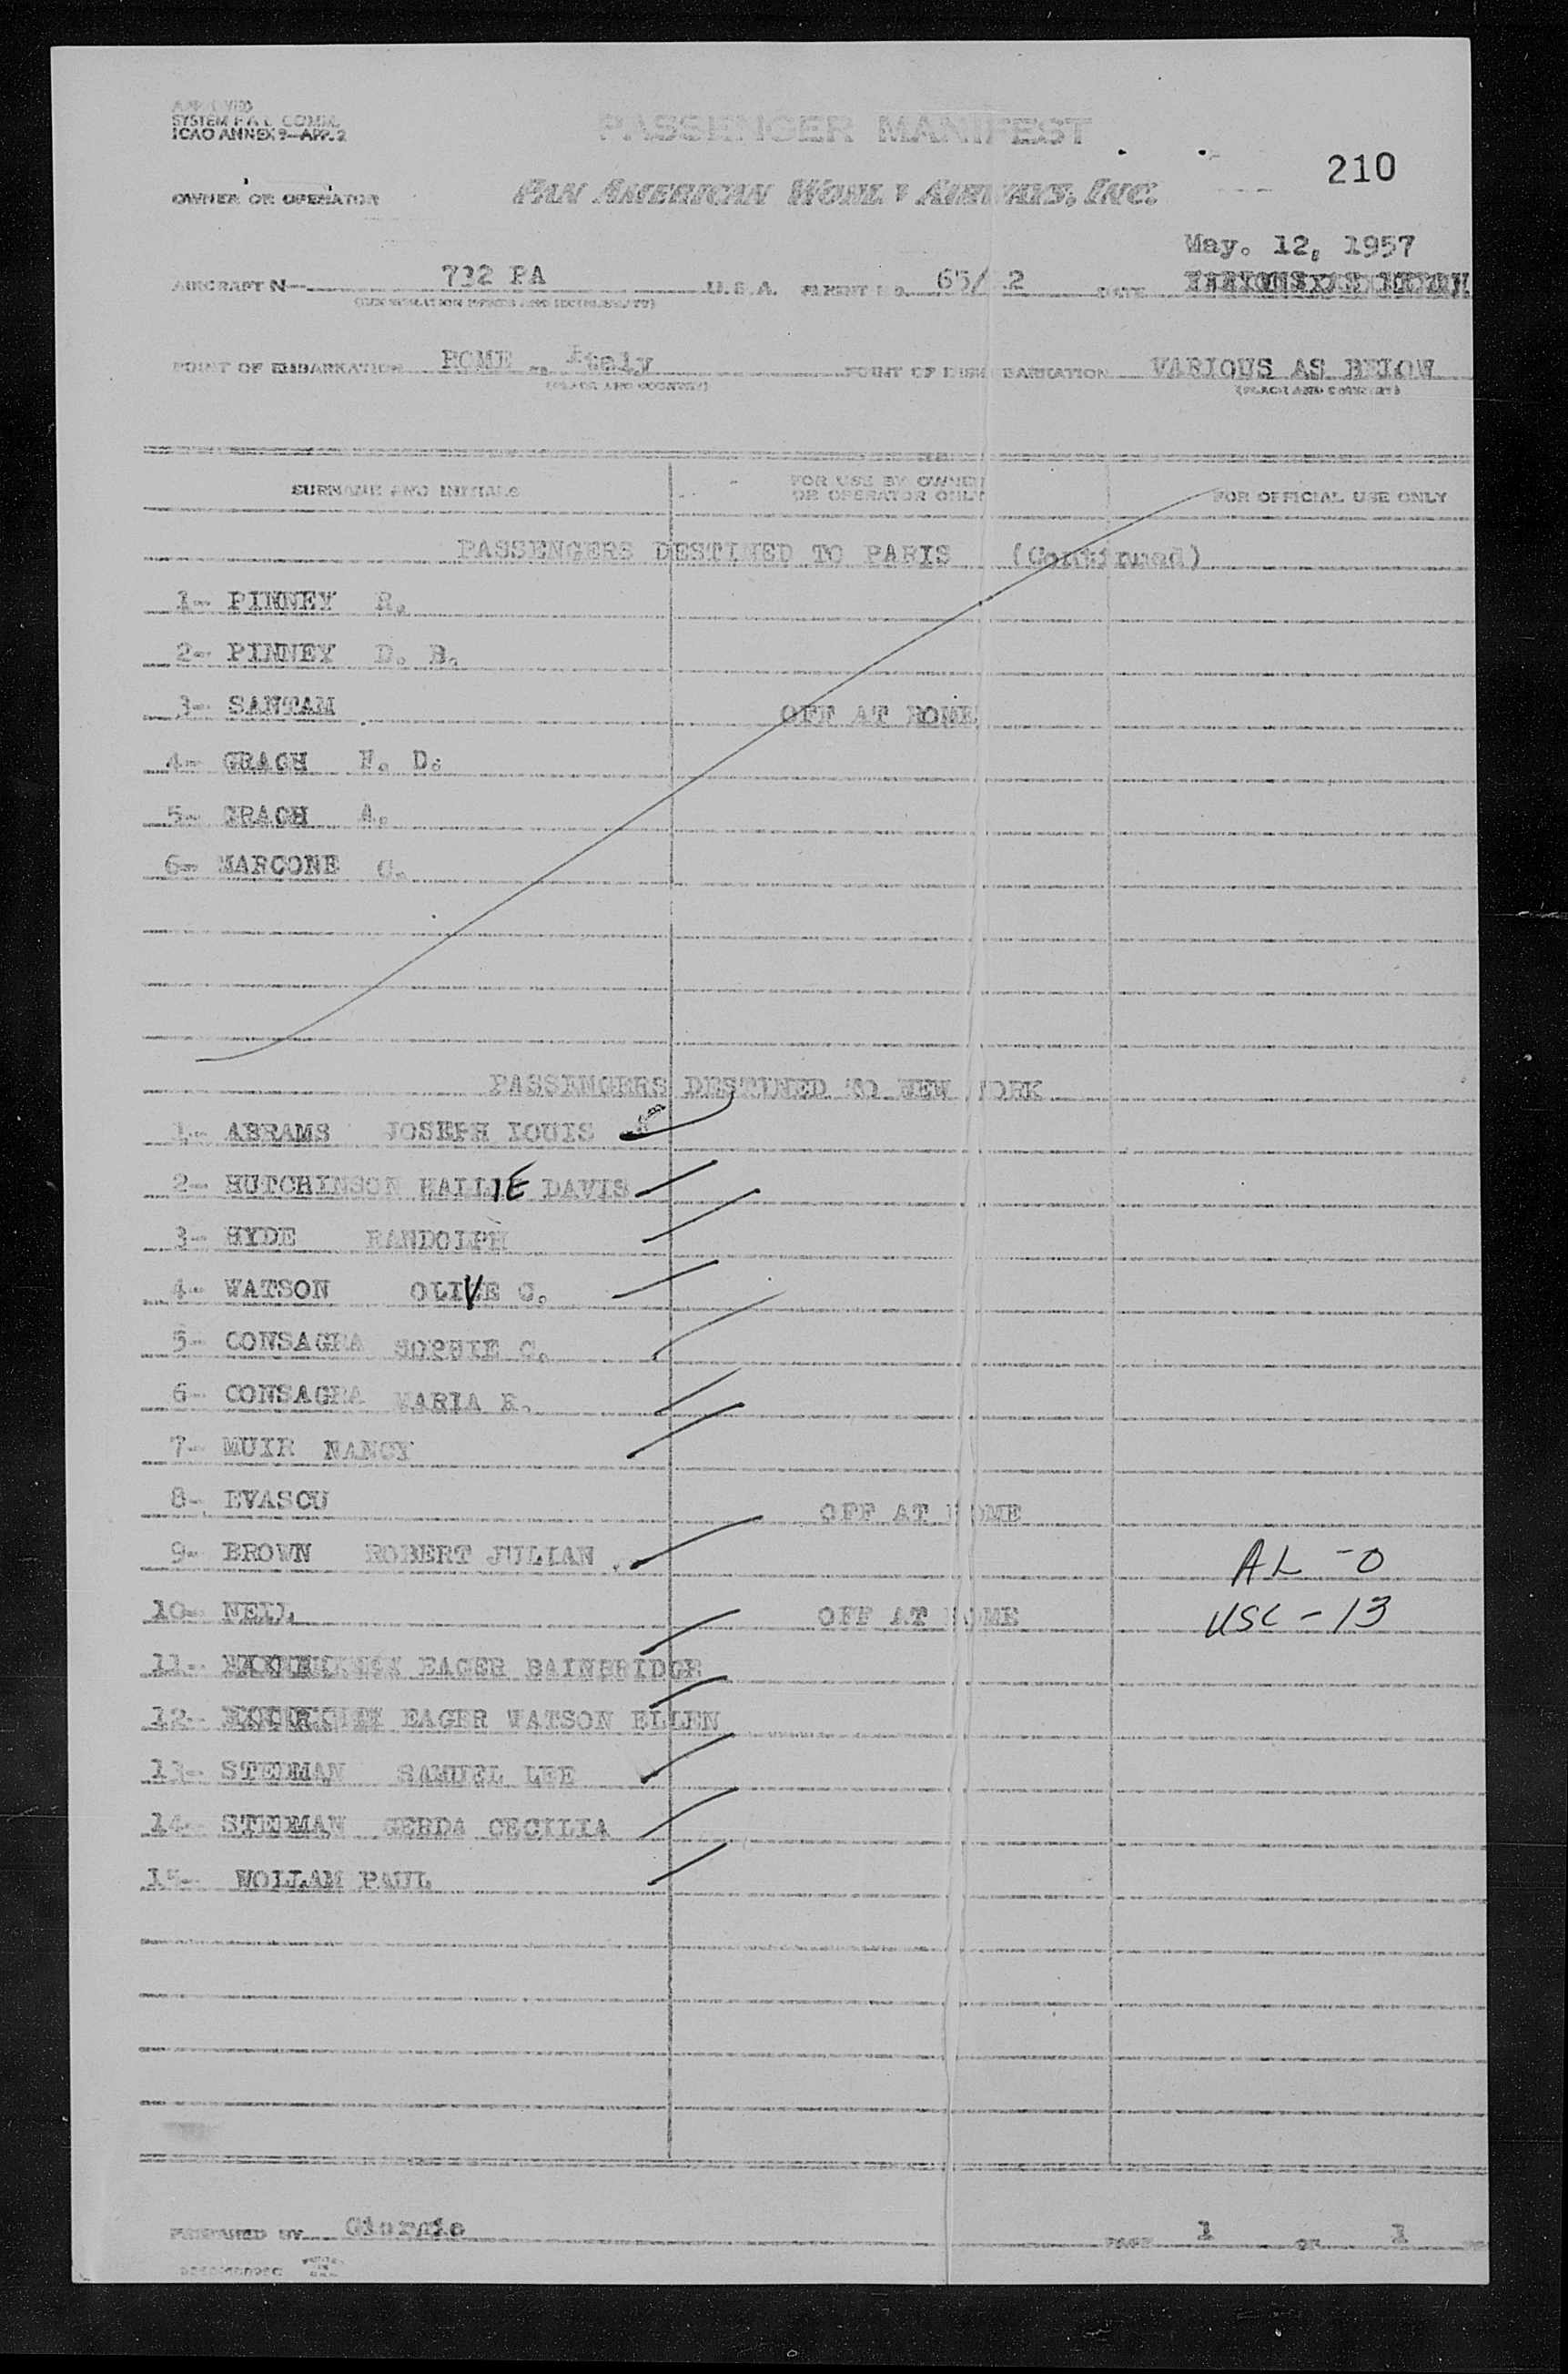 APPROVED
SYSTEM F A L COMM.
ICAO ANNEX 9—APP. 2
PASSENGER MANIFEST
210
OWNER OR OPERATOR
PAN AMERICAN WORLD AIRWAYS, INC.
May. 12, 1957
AIRCRAFT N— 732 PA U.S.A. FLIGHT NO. 65/ 2 DATE
POINT OF EMBARKATION ROME - Italy POINT OF DISEMBARKATION VARIOUS AS BELOW
(PLACE AND COUNTRY) (PLACE AND COUNTRY)
SURNAME AND INITIALS FOR USE BY OWNER OR OPERATOR ONLY FOR OFFICIAL USE ONLY
PASSENGERS DESTINED TO PARIS (Continued)
1- PINNEY R.
2- PINNEY D. B.
3- SANTAM OFF AT ROME
4- GRACH F. D.
5- GRACH A.
6- MARCONE C.
PASSENGERS DESTINED TO NEW YORK
1- ABRAMS JOSEPH LOUIS
2- HUTCHINSON HALLIE DAVIS
3- HYDE RANDOLPH
4- WATSON OLIVE C.
5- CONSAGRA SOPHIE C.
6- CONSAGRA MARIA E.
7- MUIR NANCY
8- EVASCU OFF AT ROME
9- BROWN ROBERT JULIAN AL - 0
10- NEIL OFF AT ROME USC - 13
11- EAGER BAINBRIDGE
12- EAGER WATSON ELLEN
13- STEDMAN SAMUEL LEE
14- STEDMAN GERDA CECILIA
15- WOLLAM PAUL
PREPARED BY Giorgio PAGE 1 OF 1